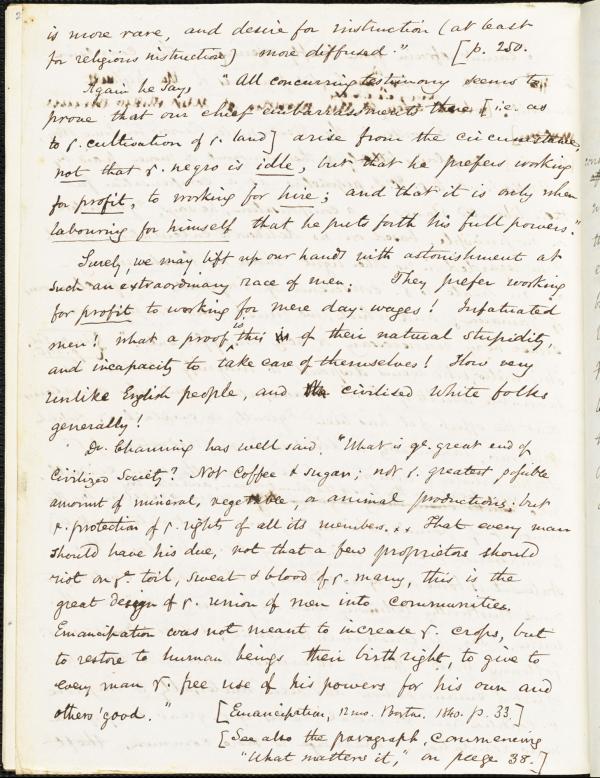 2
is more rare, and desire for instruction (at least
for religious instruction) more diffused." [p. 250.
Again he says, "All concurring testimony seems to
prove that our chief embarrassments there [i.e. as
to ye. cultivation of ye. land] arise from the circumstance,
not that ye. negro is idle, but that he prefers working
for profit, to working for hire; and that it is only when
labouring for himself that he puts forth his full powers."
Surely, we may lift up our hands with astonishment at
such an extraordinary race of men: They prefer working
for profit to working for mere day-wages! Infatuated
men! what a proof is this of their natural stupidity,
and incapacity to take care of themselves! How very
unlike English people, and civilised white folks
generally!
Dr. Channing has well said, "What is ye. great end of
Civilized Society? Not Coffee & sugar; not ye. greatest possible
amount of mineral, vegetable, or animal productions; but
ye. protection of ye. rights of all its members. . . That every man
should have his due, not that a few proprietors should
riot on ye. toil, sweat & blood of ye. many, this is the
great design of ye. union of men into communities.
Emancipation was not meant to increase ye. crops, but
to restore to human beings their birthright, to give to
every man ye. free use of his powers for his own and
others' good." [Emancipation, 12mo. Boston. 1840. p. 33]
[See also the paragraph, commencing
"What matters it," on page 38.]